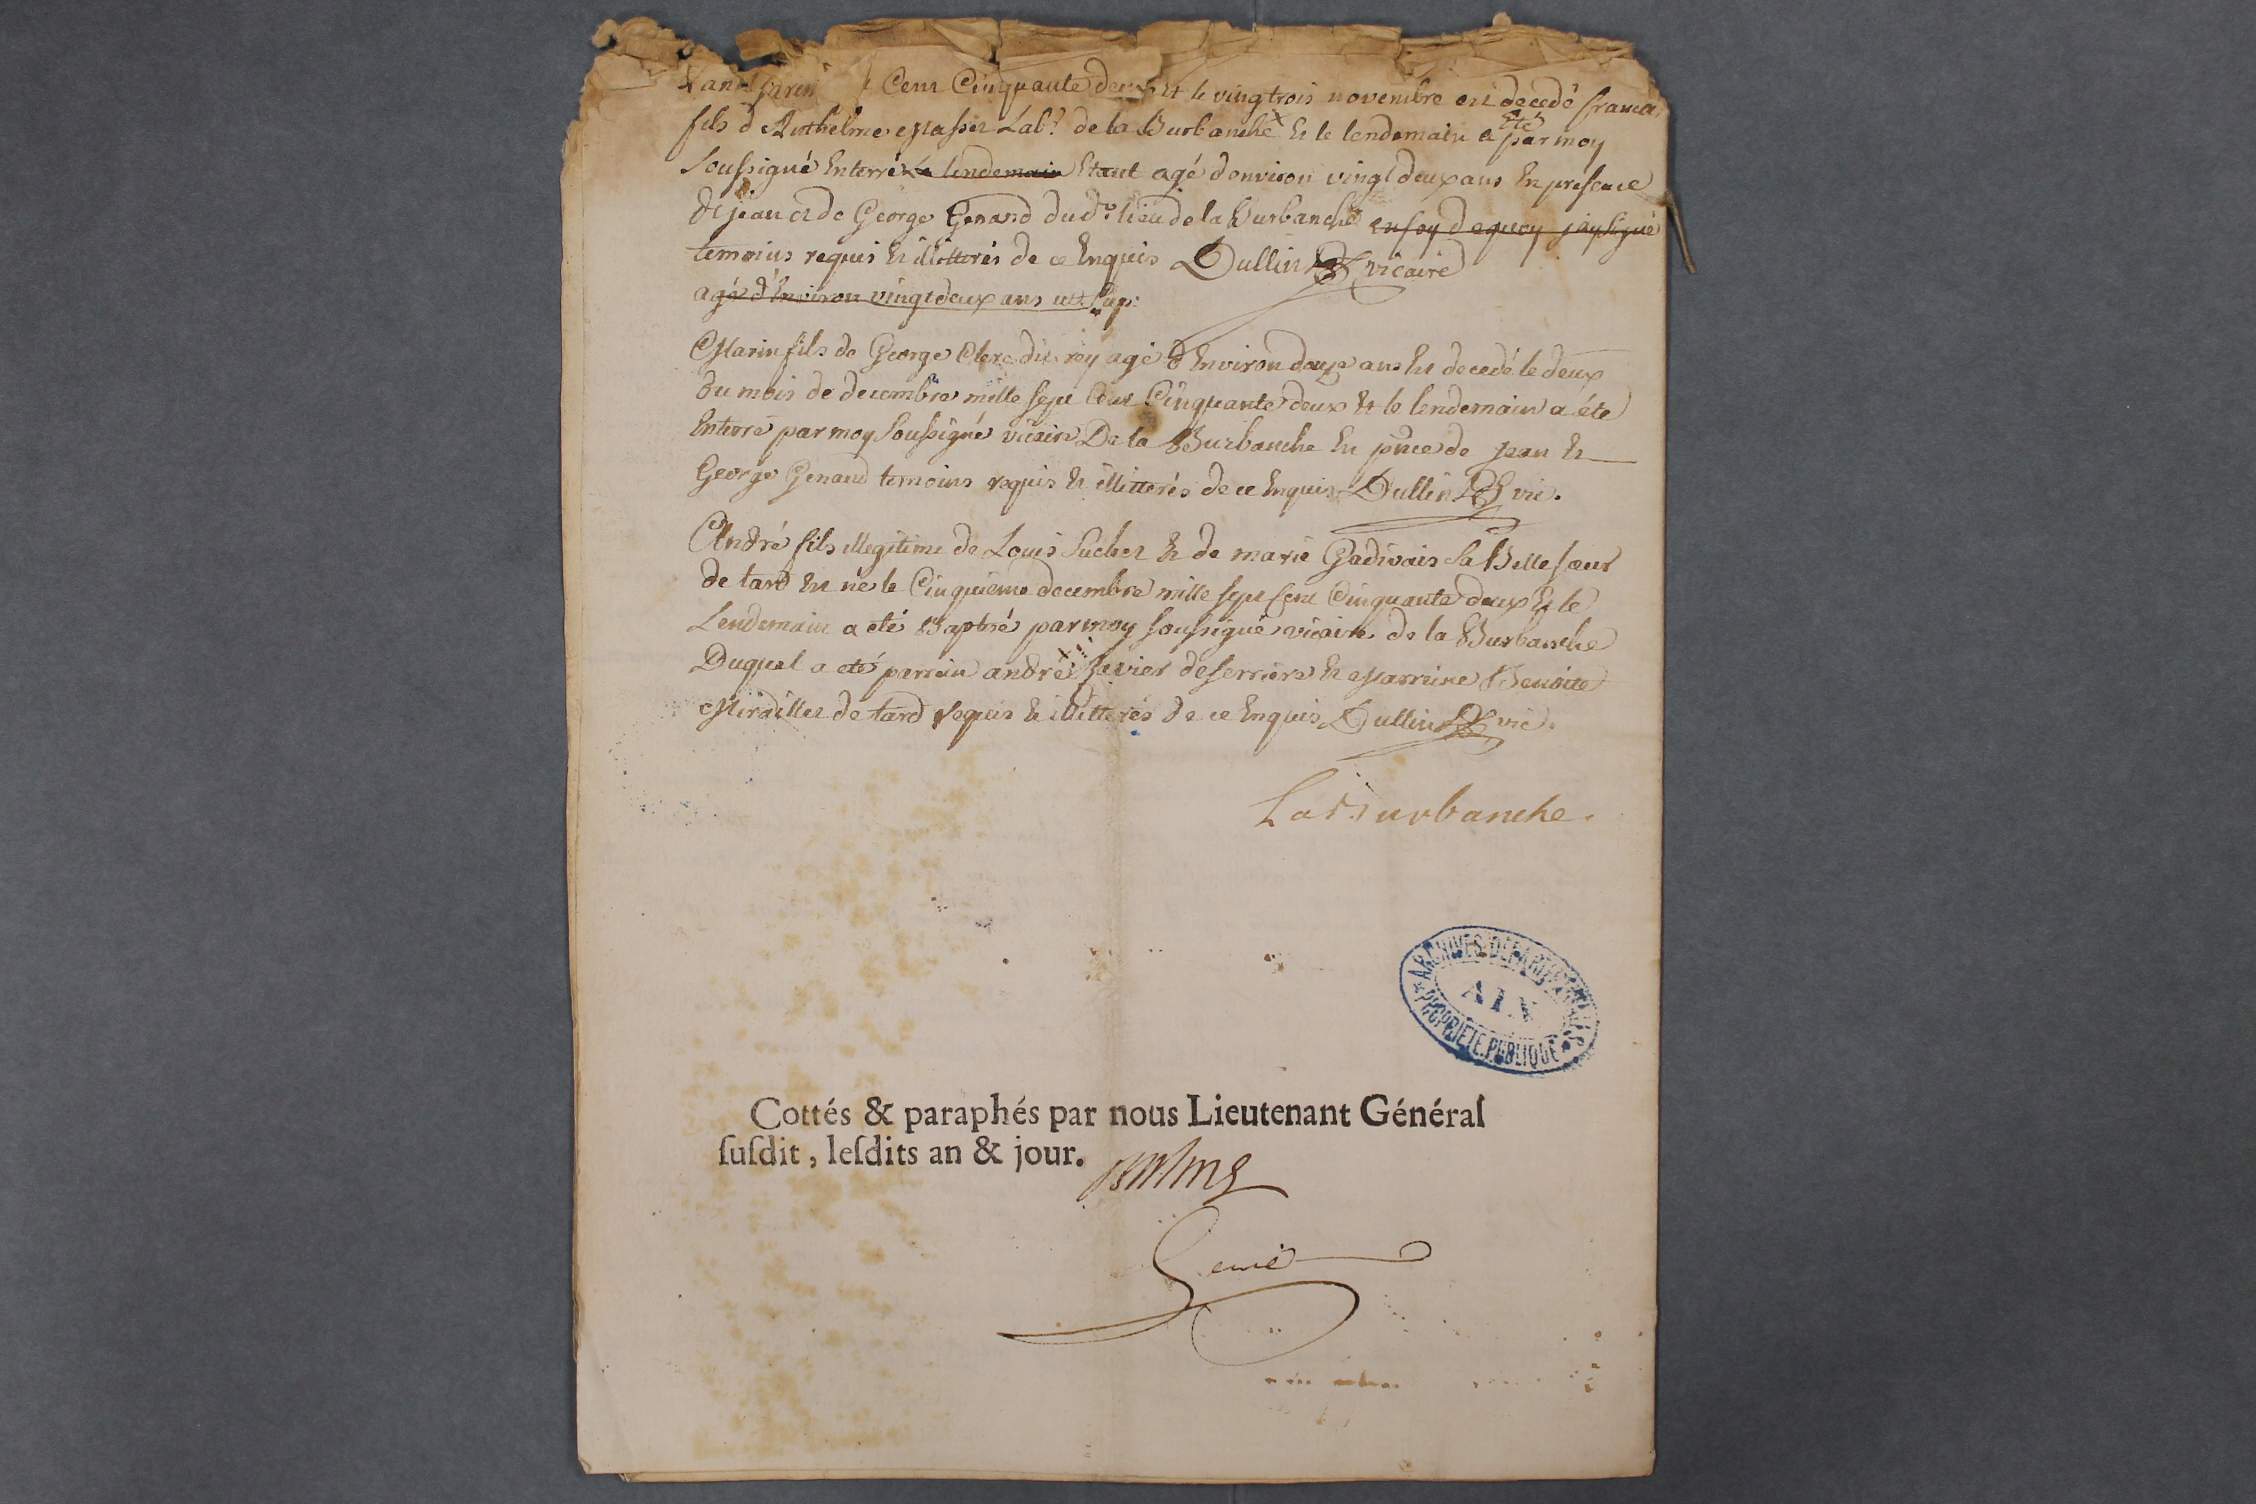 Cent Cinquante deux Et le vingtrois novembre est decedé francois
fils d Anthelme Masson Lab.r de la Burbanche × Et le lendemain a été par moy
Soussigné Enterré Le lendemain Etant agé d'environ vingt deux ans En presence
De jean et de George Genand du d.t lieu de la Burbanche en foy dequoy j'ay signé
temoins requis Et illitterés de ce Enquis Dullin vicaire
agé d'Environ vingt deux ans ut sup:
Marin fils de George Clerc dit rey agé d'Environ douze ans Est decedé le deux
du mois de decembre mille sept Cent Cinquante deux Et le lendemain a été
Enterré par moy Soussigné vicaire De la Burbanche En p̃nce de jean Et
George Genand temoins requis Et illitterés de ce Enquis Dullin vic.
André fils illegitime de Louis Suchet Et de marie Gadivois Sa Belle sœur
de tard Est né le Cinquieme decembre mille sept Cent Cinquante deux Et le
Lendemain a eté Baptisé par moy soussigné vicaire de la Burbanche
Duquel a eté parrain andré × Juvier de serriere Et Marrine Benoite
Miraillet de tard Requis Et illitterés de ce Enquis Dullin vic.
La Burbanche.
ARCHIVES DÉPARTEMENTALES
AIN
PROPRIÉTÉ PUBLIQUE
Cottés & paraphés par nous Lieutenant Général
ſuſdit, leſdits an & jour.